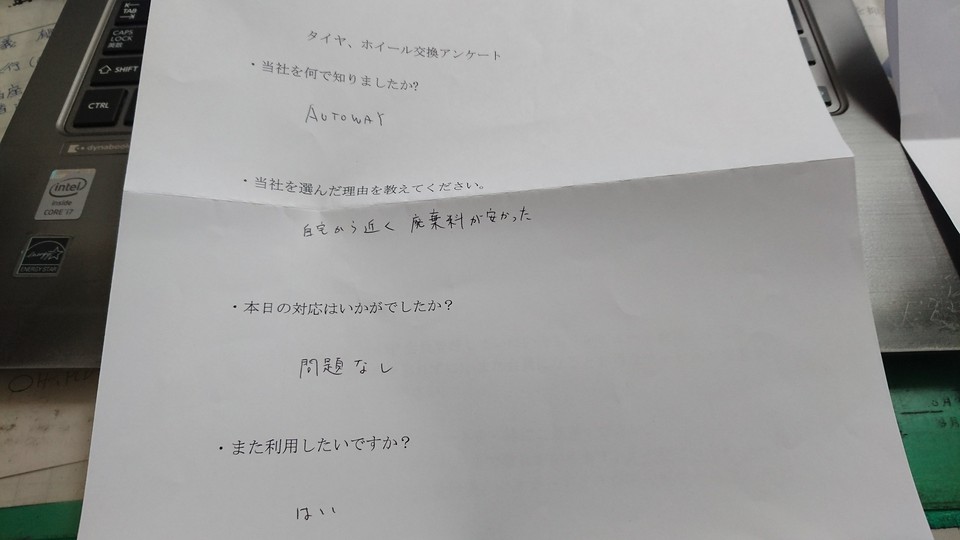 TAB
CAPS LOCK
英数
SHIFT
CTRL
dynabook
intel
inside
CORE i7
ENERGY STAR
タイヤ、ホイール交換アンケート
・当社を何で知りましたか?
AUTOWAY
・当社を選んだ理由を教えてください。
自宅から近く 廃棄料が安かった
・本日の対応はいかがでしたか?
問題なし
・また利用したいですか?
はい